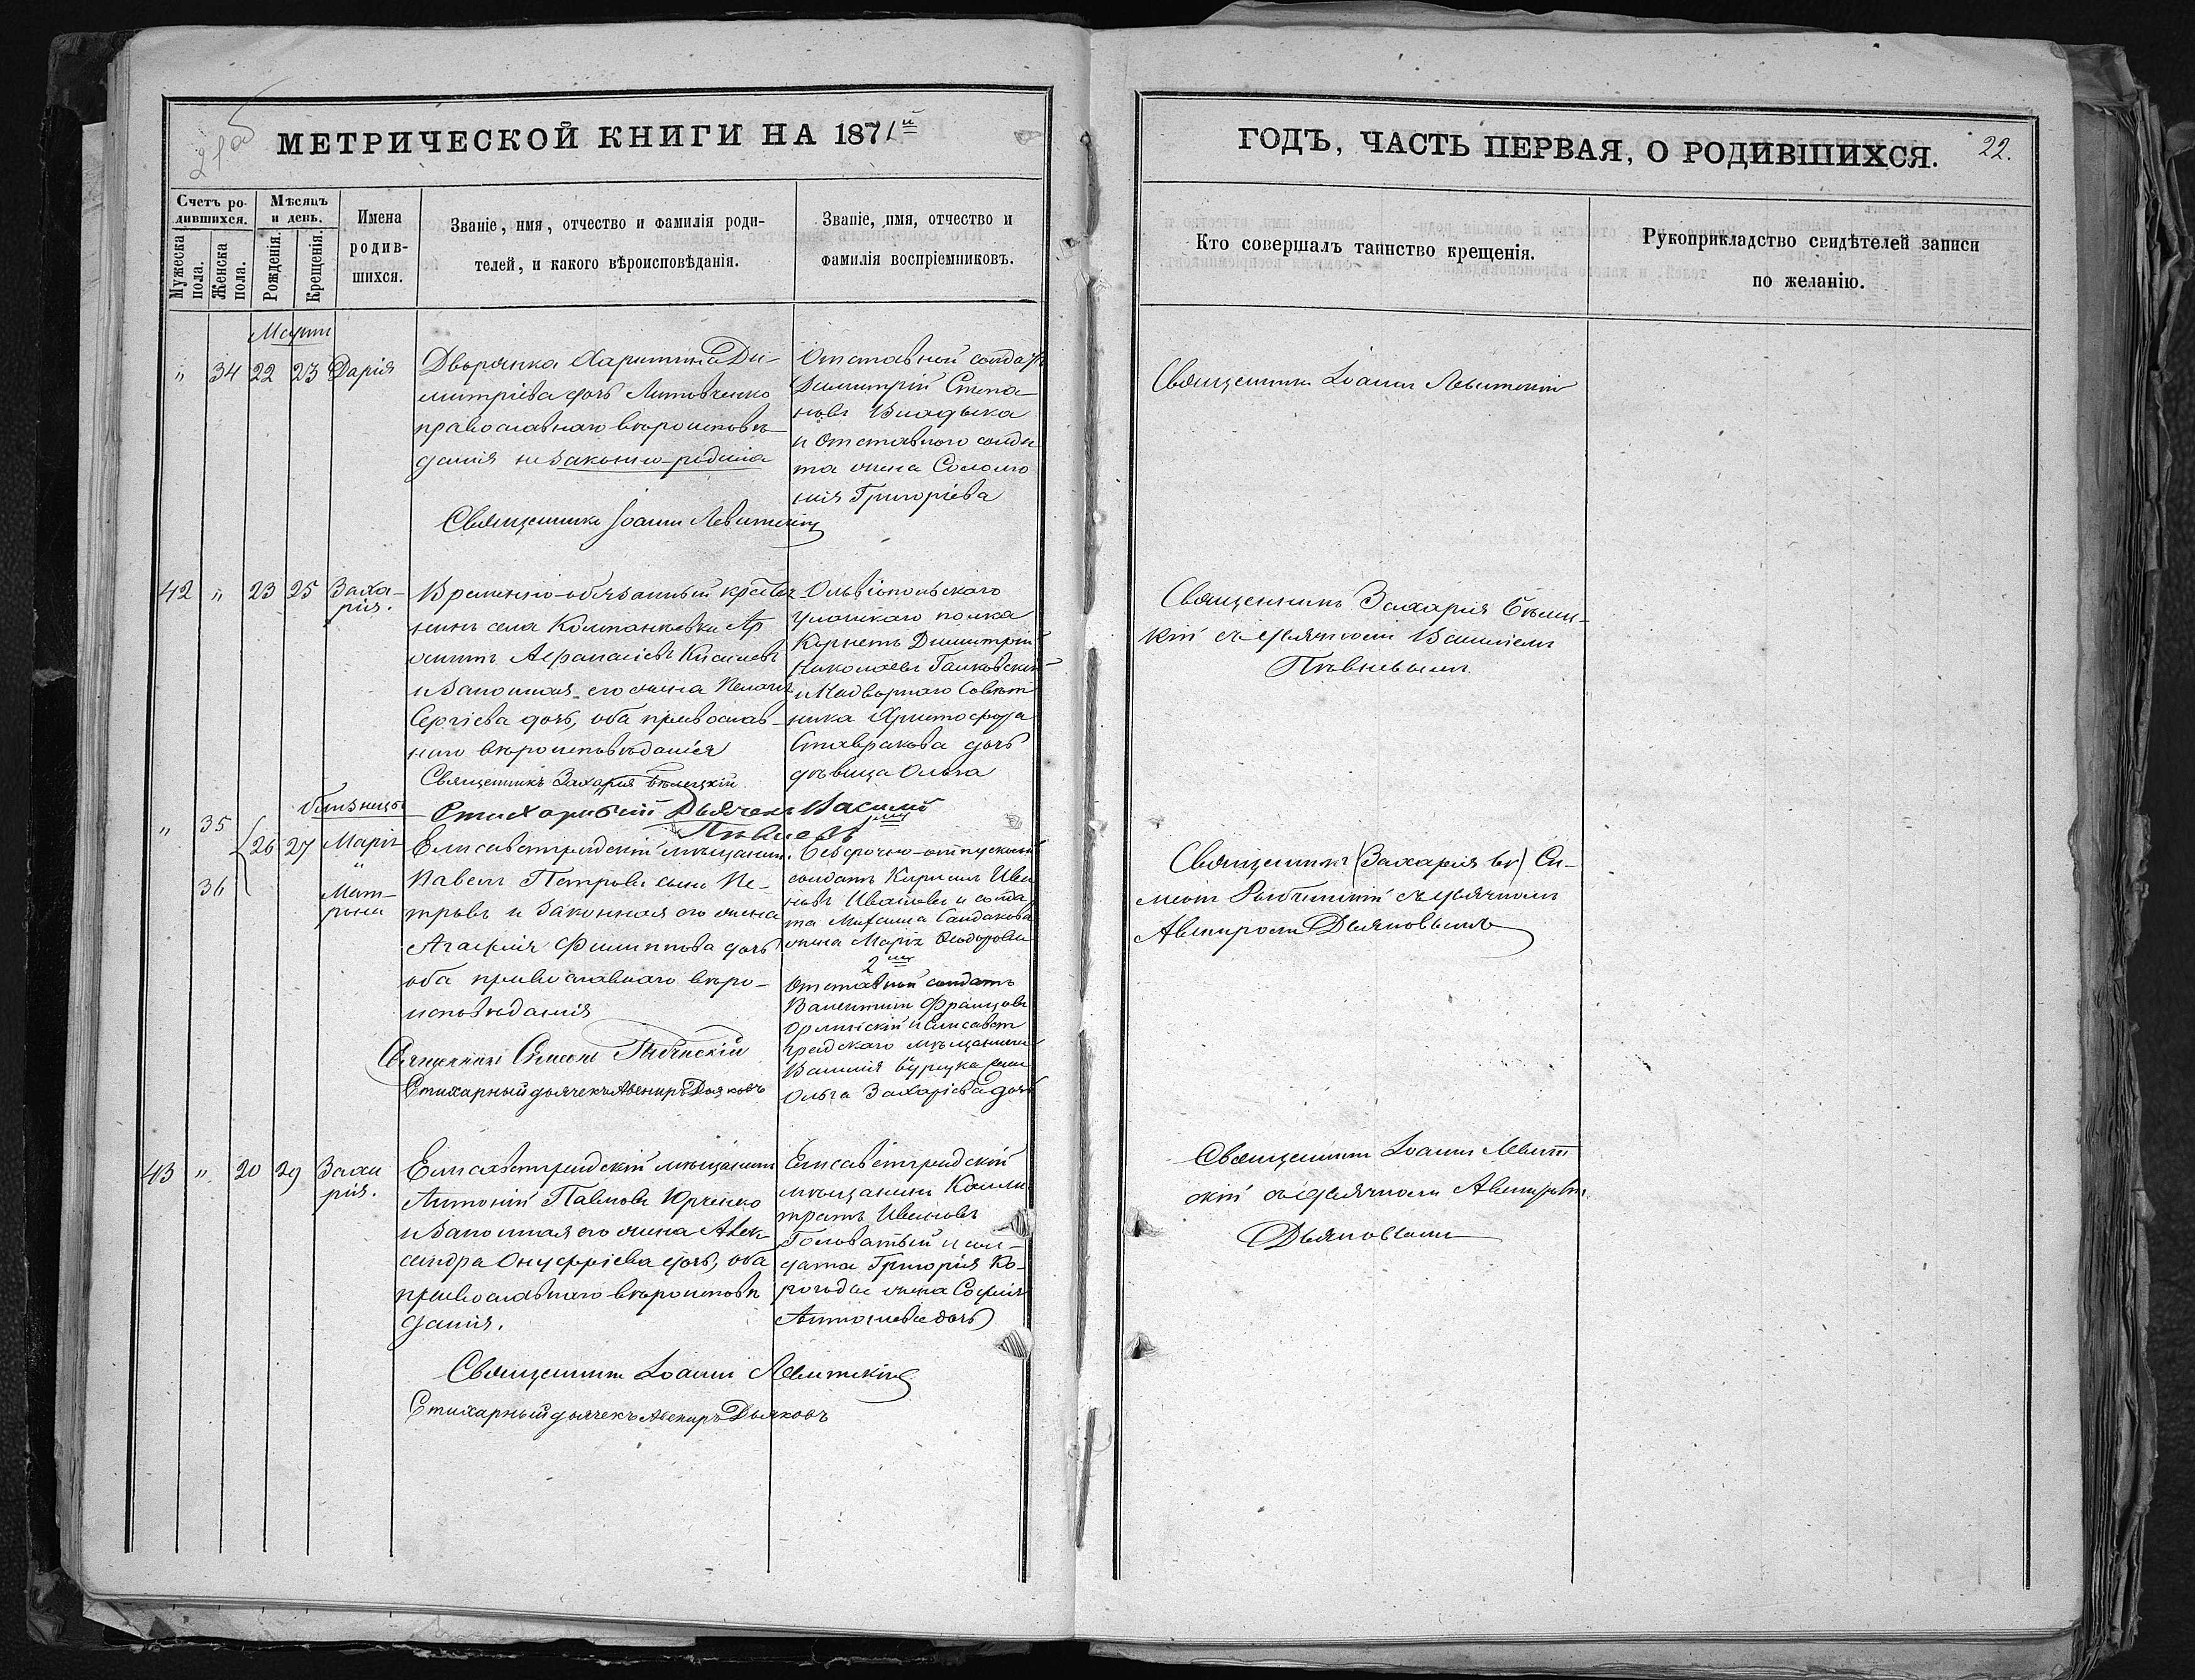 21 об
МЕТРИЧЕСКОЙ КНИГИ НА 1871й
ГОДЪ, ЧАСТЬ ПЕРВАЯ, О РОДИВШИХСЯ.
22.
Счетъ ро-
дившихся.
Мужеска пола.
Женска пола.
Мѣсяцъ
и день.
Рожденія.
Крещенія.
Имена
родив-
шихся.
Званіе, имя, отчество и фамилія роди-
телей, и какого вѣроисповѣданія.
Званіе, имя, отчество и
фамилія воспріемниковъ.
Кто совершалъ таинство крещенія.
Рукоприкладство свидѣтелей записи
по желанію.
Мартъ
" 34 22 23 Дарія
Дворянка Харитина Ди-
митріева дочь Литовченко
православнаго вѣроисповѣ-
данія незаконно-родила
Священникъ Іоаннъ Левитскій
Отставной солдатъ
Димитрій Степа-
новъ Владыка
и отставного солда
та жена Соломо
нія Григоріева
Священникъ Іоаннъ Левитскій
42 " 23 25 Заха-
рія.
Временно-обязанный крестья
нинъ села Компанѣевки
Аѳанасіевъ
и законная его жена Пелагія
Сергіева дочь, оба православ-
наго вѣроисповѣданія
Священникъ Захарія Бѣлецкій
Стихарный Дьячекъ Василій
Пѣвневъ
Ольвіопольскаго
Уланскаго полка
Корнетъ Димитрій
Николаевъ
и Надворнаго Совѣт
ника Христофора
Ставракова дочь
дѣвица Ольга
Священникъ Захарія Бѣлец-
кій съ дьячкомъ Василіемъ
Пѣвневымъ.
близнецы
" 35
36
26 27 Марія
"
Мат-
рона
Елисаветградскій мѣщанинъ
Павелъ Петровъ сынъ Пе-
тровъ и законная его жена
Агафія Филиппова дочь
оба православнаго вѣро-
исповѣданія
Священникъ Симеонъ
Стихарный дьячекъ Авениръ Дьяковъ
1й
Безсрочно-отпускной
солдатъ Кириллъ Ива
новъ Ивановъ и солда
та Михаила Сандакова
жена Марія Ѳеодорова
2й
Отставной солдатъ
Валентинъ Францовъ
Орлинскій и Елисавет
градскаго мѣщанина
Василія
Ольга Захаріева дочь
Священникъ (Захарія Бѣ) Си-
меонъ съ дьячкомъ
Авениромъ Дьяковымъ
43 " 20 29 Заха
рія.
Елисаветградскій мѣщанинъ
Антоній Павловъ Юрченко
и законная его жена Алек-
сандра Онуфріева дочь, оба
православнаго вѣроисповѣ
данія.
Священникъ Іоаннъ Левитскій
Стихарный дьячекъ Авениръ Дьяковъ
Елисаветградскій
мѣщанинъ Калли
стратъ Ивановъ
Головатый и сол-
дата Григорія Ко-
жена Софія
Антоніева дочь
Священникъ Іоаннъ Левит
скій съ дьячкомъ Авениромъ
Дьяковымъ